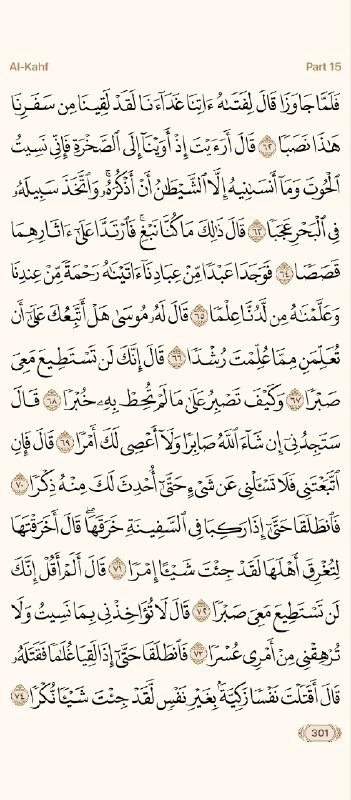 Al-Kahf
Part 15
فَلَمَّا جَاوَزَا قَالَ لِفَتَىٰهُ ءَاتِنَا غَدَآءَنَا لَقَدْ لَقِينَا مِن سَفَرِنَا
هَٰذَا نَصَبًا ٦٢ قَالَ أَرَءَيْتَ إِذْ أَوَيْنَآ إِلَى ٱلصَّخْرَةِ فَإِنِّي نَسِيتُ
ٱلْحُوتَ وَمَآ أَنسَىٰنِيهُ إِلَّا ٱلشَّيْطَٰنُ أَنْ أَذْكُرَهُۥ ۚ وَٱتَّخَذَ سَبِيلَهُۥ
فِي ٱلْبَحْرِ عَجَبًا ٦٣ قَالَ ذَٰلِكَ مَا كُنَّا نَبْغِ ۚ فَٱرْتَدَّا عَلَىٰٓ ءَاثَارِهِمَا
قَصَصًا ٦٤ فَوَجَدَا عَبْدًا مِّنْ عِبَادِنَآ ءَاتَيْنَٰهُ رَحْمَةً مِّنْ عِندِنَا
وَعَلَّمْنَٰهُ مِن لَّدُنَّا عِلْمًا ٦٥ قَالَ لَهُۥ مُوسَىٰ هَلْ أَتَّبِعُكَ عَلَىٰٓ أَن
تُعَلِّمَنِ مِمَّا عُلِّمْتَ رُشْدًا ٦٦ قَالَ إِنَّكَ لَن تَسْتَطِيعَ مَعِيَ
صَبْرًا ٦٧ وَكَيْفَ تَصْبِرُ عَلَىٰ مَا لَمْ تُحِطْ بِهِۦ خُبْرًا ٦٨ قَالَ
سَتَجِدُنِيٓ إِن شَآءَ ٱللَّهُ صَابِرًا وَلَآ أَعْصِي لَكَ أَمْرًا ٦٩ قَالَ فَإِنِ
ٱتَّبَعْتَنِي فَلَا تَسْـَٔلْنِي عَن شَيْءٍ حَتَّىٰٓ أُحْدِثَ لَكَ مِنْهُ ذِكْرًا ٧٠
فَٱنطَلَقَا حَتَّىٰٓ إِذَا رَكِبَا فِي ٱلسَّفِينَةِ خَرَقَهَا ۖ قَالَ أَخَرَقْتَهَا
لِتُغْرِقَ أَهْلَهَا لَقَدْ جِئْتَ شَيْـًٔا إِمْرًا ٧١ قَالَ أَلَمْ أَقُلْ إِنَّكَ
لَن تَسْتَطِيعَ مَعِيَ صَبْرًا ٧٢ قَالَ لَا تُؤَاخِذْنِي بِمَا نَسِيتُ وَلَا
تُرْهِقْنِي مِنْ أَمْرِي عُسْرًا ٧٣ فَٱنطَلَقَا حَتَّىٰٓ إِذَا لَقِيَا غُلَٰمًا فَقَتَلَهُۥ
قَالَ أَقَتَلْتَ نَفْسًا زَكِيَّةًۢ بِغَيْرِ نَفْسٍ لَّقَدْ جِئْتَ شَيْـًٔا نُّكْرًا ٧٤
301